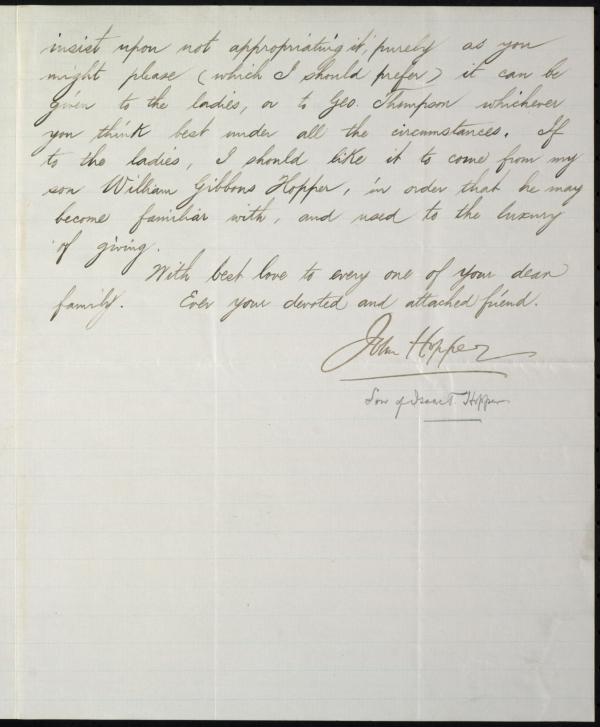 insist upon not appropriating it, purely as you
might please (which I should prefer) it can be
given to the ladies, or to Geo. Thompson whichever
you think best under all the circumstances. If
to the ladies, I should like it to come from my
son William Gibbons Hopper, in order that he may
become familiar with, and used to the luxury
of giving.
With best love to every one of your dear
family. Ever your devoted and attached friend.
John Hopper
Son of Isaac T. Hopper